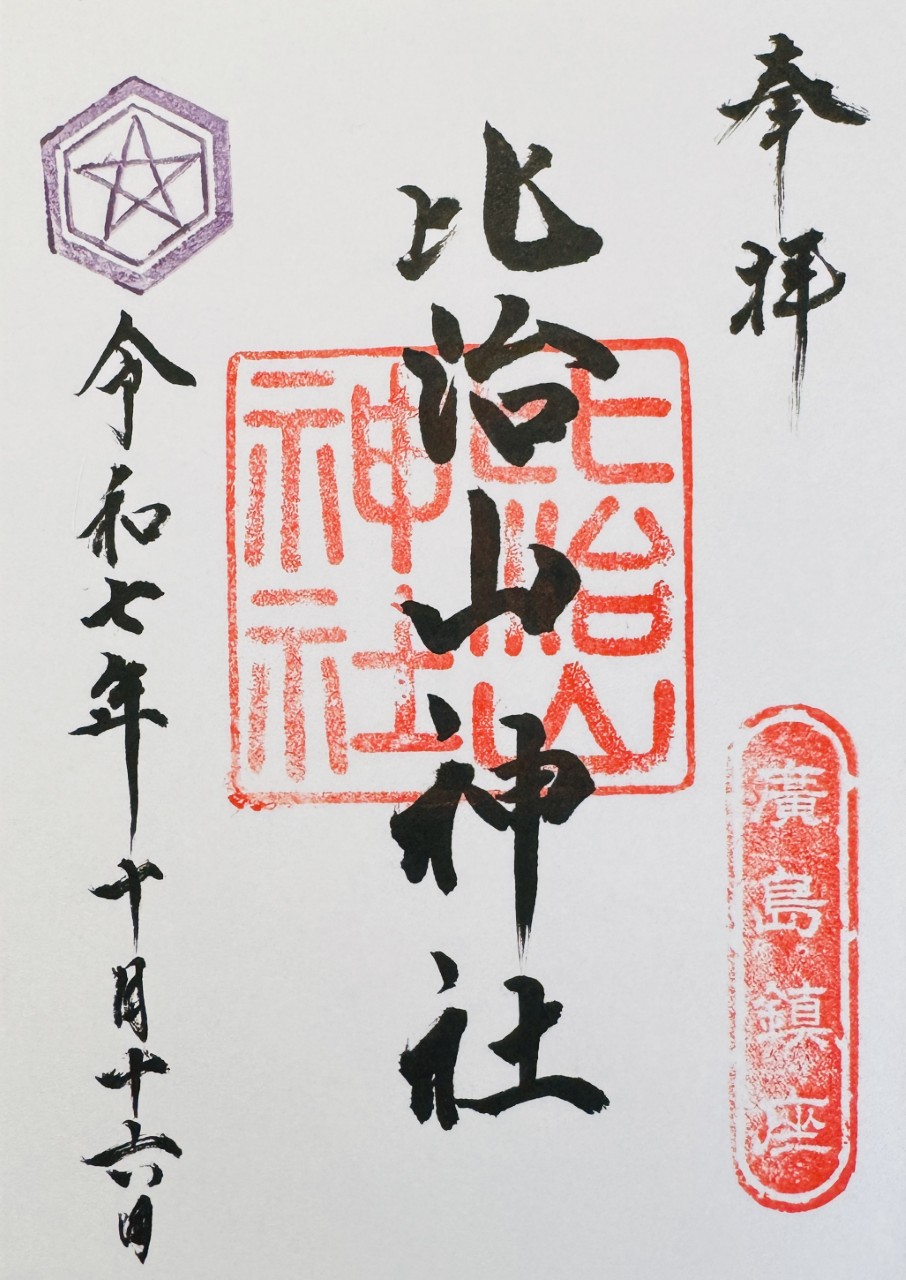 奉拝
廣島鎮座
比治山神社
比治山
神社
令和七年十月十六日